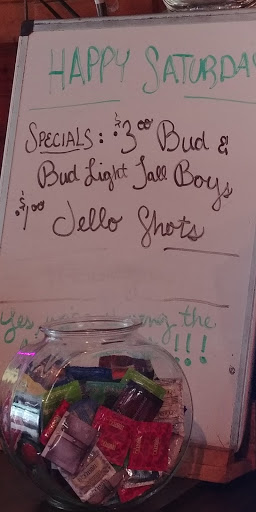 HAPPY SATURDA
SPECIALS: $3.00 Bud &
Bud Light Tall Boys
$1.00 Jello Shots
Yes, the
!!!